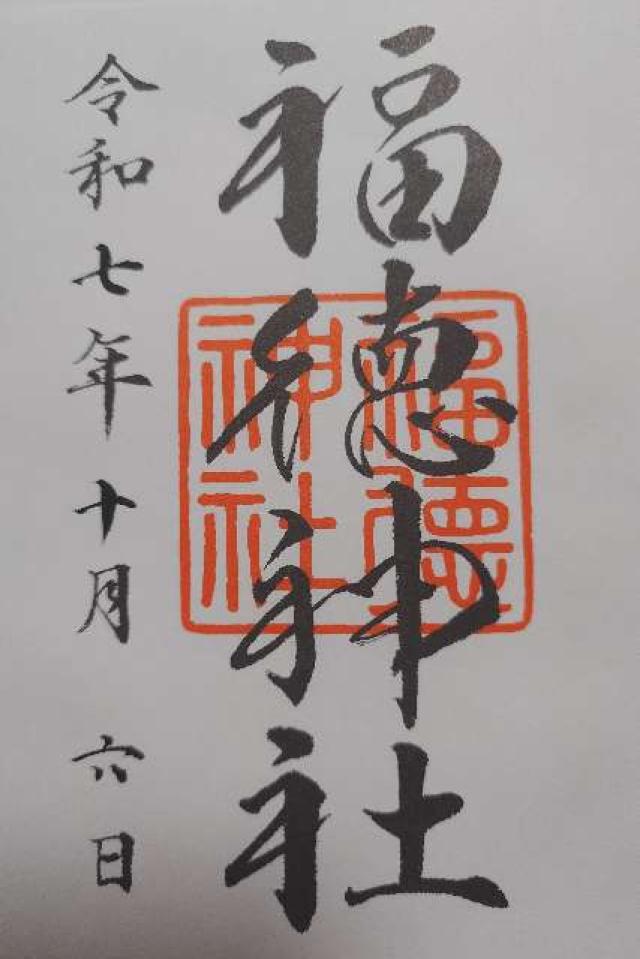 福徳神社
福徳
神社
令和七年十月六日